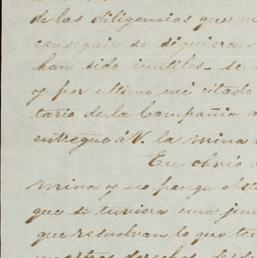 de las diligencias que
conseguir se dignieran
han sido inutiles. se
y por ultimo mi citado
tario de la Compañia
entregue á V. la mina
En obvio
mina y se ponga
que se tuviera una jun
que resuelvan lo que
derechos